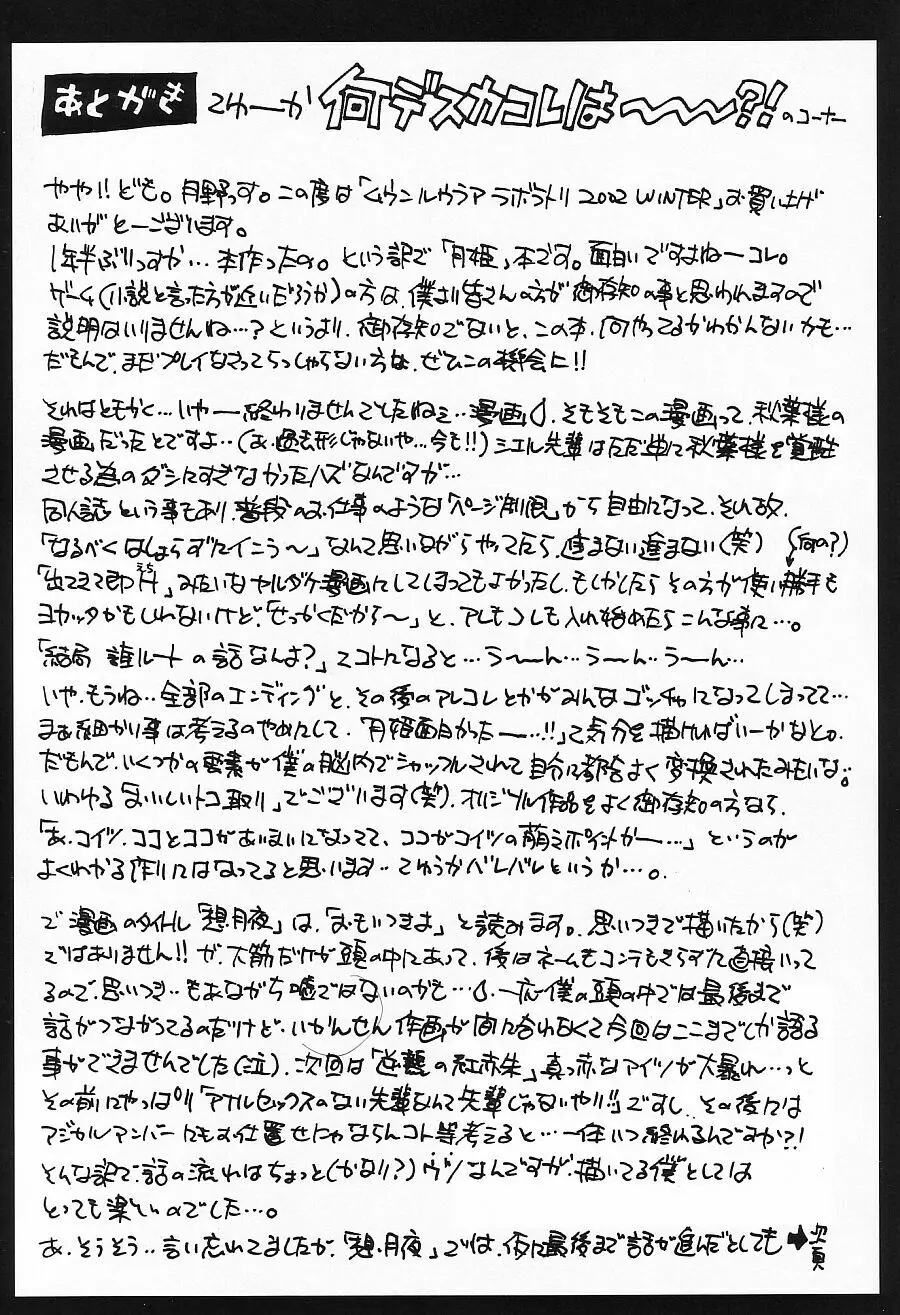 あとがき てゆーか 何デスカコレは～～～?! のコーナー
やや!!ども。月野っす。この度は「ムウンルウラア ラボラトリ 2002 WINTER」お買い上げ
ありがとーございます。
1年半ぶりっすか…本作ったの。という訳で「月姫」本です。面白いですよねーコレ。
ゲーム(小説と言った方が近いだろうか)の方は、僕より皆さんの方が御存知の事と思われますので
説明はいりませんね…?というより、御存知でないと、この本、何やってるかわかんないかも…
だもんで、まだプレイなさってらっしゃらない方は、ぜひこの機会に!!
それはともかく…いやー終わりませんでしたねェ…漫画。そもそもこの漫画って、秋葉様の
漫画だったとですよ…(あ、過去形じゃないや…今も!!)シエル先輩はただ単に秋葉様を覚醒
させる為のダシにすぎなかったハズなんですが…
同人誌という事もあり、普段のお仕事のような「ページ制限」から自由になって、それ故、
「なるべくはしょらずにイこう～」なんて思いながらやってたら、進まない進まない(笑) (何の?)
「出てきて即H」みたいなヤルダケ漫画にしてしまってもよかったし、もしかしたらその方が使い勝手も
ヨカッタかもしれないけど、「せっかくだから～」と、アレもコレも入れ始めたらこんな事に…。
「結局 誰ルートの話なんよ?」てコトになると…う～ん…う～ん…う～ん…
いや、もうね…全部のエンディングと、その後のアレコレとかがみんなゴッチャになってしまってて…
まぁ細かい事は考えるのやめにして、「月姫面白かったー…!!」て気分を描ければいーかなと。
だもんで、いくつかの要素が僕の脳内でシャッフルされて自分に都合よく変換されたみたいな。
いわゆる「おいしいトコ取り」でございます(笑)。オリジナル作品をよく御存知の方なら、
「あ、コイツ、ココとココがあいまいになってて、ココがコイツの萌えポイントかー…」というのが
よくわかる作りにはなってると思います…てゆうかベレバレというか…。
で漫画のタイトル「想月夜」は、「おもいつきよ」と読みます。思いつきで描いたから(笑)
ではありません!!が、大筋だけが頭の中にあって、後はネームもコンテもきらずに直接いって
るので、思いつき…もあながち嘘ではないのかも…。一応僕の頭の中では最後まで
話がつながってるのだけど、いかんせん作画が間に合わなくて今回はここまでしか語る
事ができませんでした(泣)。次回は「逆襲の紅赤朱」真っ赤なアイツが大暴れ…っと
その前にやっぱり「アナルセックスのない先輩なんて先輩じゃないやい!!」ですし、その後には
マジカルアンバーにもお仕置せにゃならんコト等考えると…一体いつ終わるんですか?!
そんな訳で、話の流れはちょっと(かなり?)ウソなんですが、描いてる僕としては
とっても楽しいのでした…。
あ、そうそう…言い忘れてましたが、「想月夜」では、仮に最後まで話が進んだとしても ➡次頁